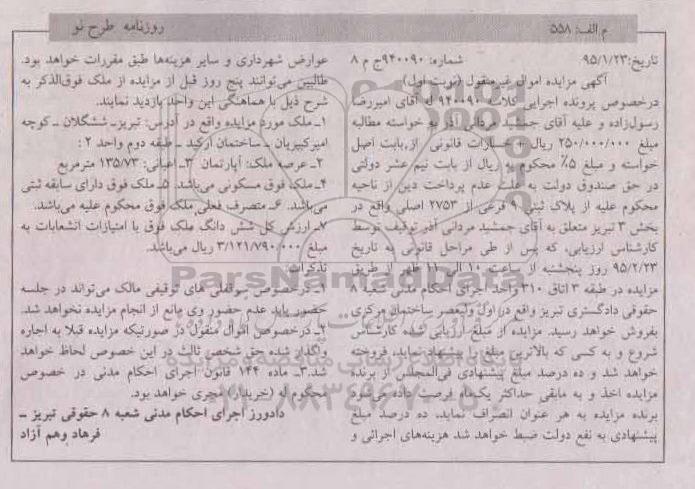 م الف: ۵۵۸
روزنامه طرح نو
تاریخ: ۹۵/۱/۲۳ شماره: ۹۴۰۰۹۰ج م ۸
آگهی مزایده اموال غیرمنقول (نوبت اول)
درخصوص پرونده اجرایی کلاسه ۹۴۰۰۹۰ له آقای امیررضا
رسول‌زاده و علیه آقای جمشید مردانی آذر به خواسته مطالبه
مبلغ ۲۵۰/۰۰۰/۰۰۰ ریال + خسارات قانونی از بابت اصل
خواسته و مبلغ ۵٪ محکوم به ریال از بابت نیم عشر دولتی
در حق صندوق دولت به علت عدم پرداخت دین از ناحیه
محکوم علیه از پلاک ثبتی ۹ فرعی از ۲۷۵۳ اصلی واقع در
بخش ۳ تبریز متعلق به آقای جمشید مردانی آذر توقیف توسط
کارشناس ارزیابی، که پس از طی مراحل قانونی به تاریخ
۹۵/۲/۲۳ روز پنجشنبه از ساعت ۱۰ الی ۱۲ ظهر از طریق
مزایده در طبقه ۳ اتاق ۳۱۰ واحد اجرای احکام مدنی شعبه ۸
حقوقی دادگستری تبریز واقع در اول ولیعصر ساختمان مرکزی
بفروش خواهد رسید. مزایده از مبلغ ارزیابی شده کارشناس
شروع و به کسی که بالاترین مبلغ را پیشنهاد نماید، فروخته
خواهد شد و ده درصد مبلغ پیشنهادی فی‌المجلس از برنده
مزایده اخذ و به مابقی حداکثر یک‌ماه فرصت داده می‌شود
برنده مزایده به هر عنوان انصراف نماید، ده درصد مبلغ
پیشنهادی به نفع دولت ضبط خواهد شد هزینه‌های اجرائی و
عوارض شهرداری و سایر هزینه‌ها طبق مقررات خواهد بود.
طالبین می‌توانند پنج روز قبل از مزایده از ملک فوق‌الذکر به
شرح ذیل با هماهنگی این واحد بازدید نمایند.
۱ـ ملک مورد مزایده واقع در آدرس: تبریزـ ششگلان ـ کوچه
امیرکبیریان ـ ساختمان ارکید ـ طبقه دوم واحد ۲ :
۲ـ عرصه ملک: آپارتمان ۳ـ اعیانی: ۱۳۵/۷۳ مترمربع
۴ـ ملک فوق مسکونی می‌باشد. ۵ـ ملک فوق دارای سابقه ثبتی
می‌باشد. ۶ـ متصرف فعلی ملک فوق محکوم علیه می‌باشد.
۷ـ ارزش کل شش دانگ ملک فوق با امتیازات انشعابات به
مبلغ ۳/۱۲۱/۷۹۰/۰۰۰ ریال می‌باشد.
تذکرات:
۱ـ درخصوص سرقفلی های توقیفی مالک می‌تواند در جلسه
حضور یابد عدم حضور وی مانع از انجام مزایده نخواهد شد.
۲ـ درخصوص اموال منقول در صورتیکه مزایده قبلا به اجاره
واگذار شده حق شخص ثالث در این خصوص لحاظ خواهد
شد.۳ـ ماده ۱۴۴ قانون اجرای احکام مدنی در خصوص
محکوم له (خریدار) مجری خواهد بود.
دادورز اجرای احکام مدنی شعبه ۸ حقوقی تبریز ـ
فرهاد وهم آزاد
ParsNamadData
۰۲۱-۸۸۳۴۹۶۷۰-۵